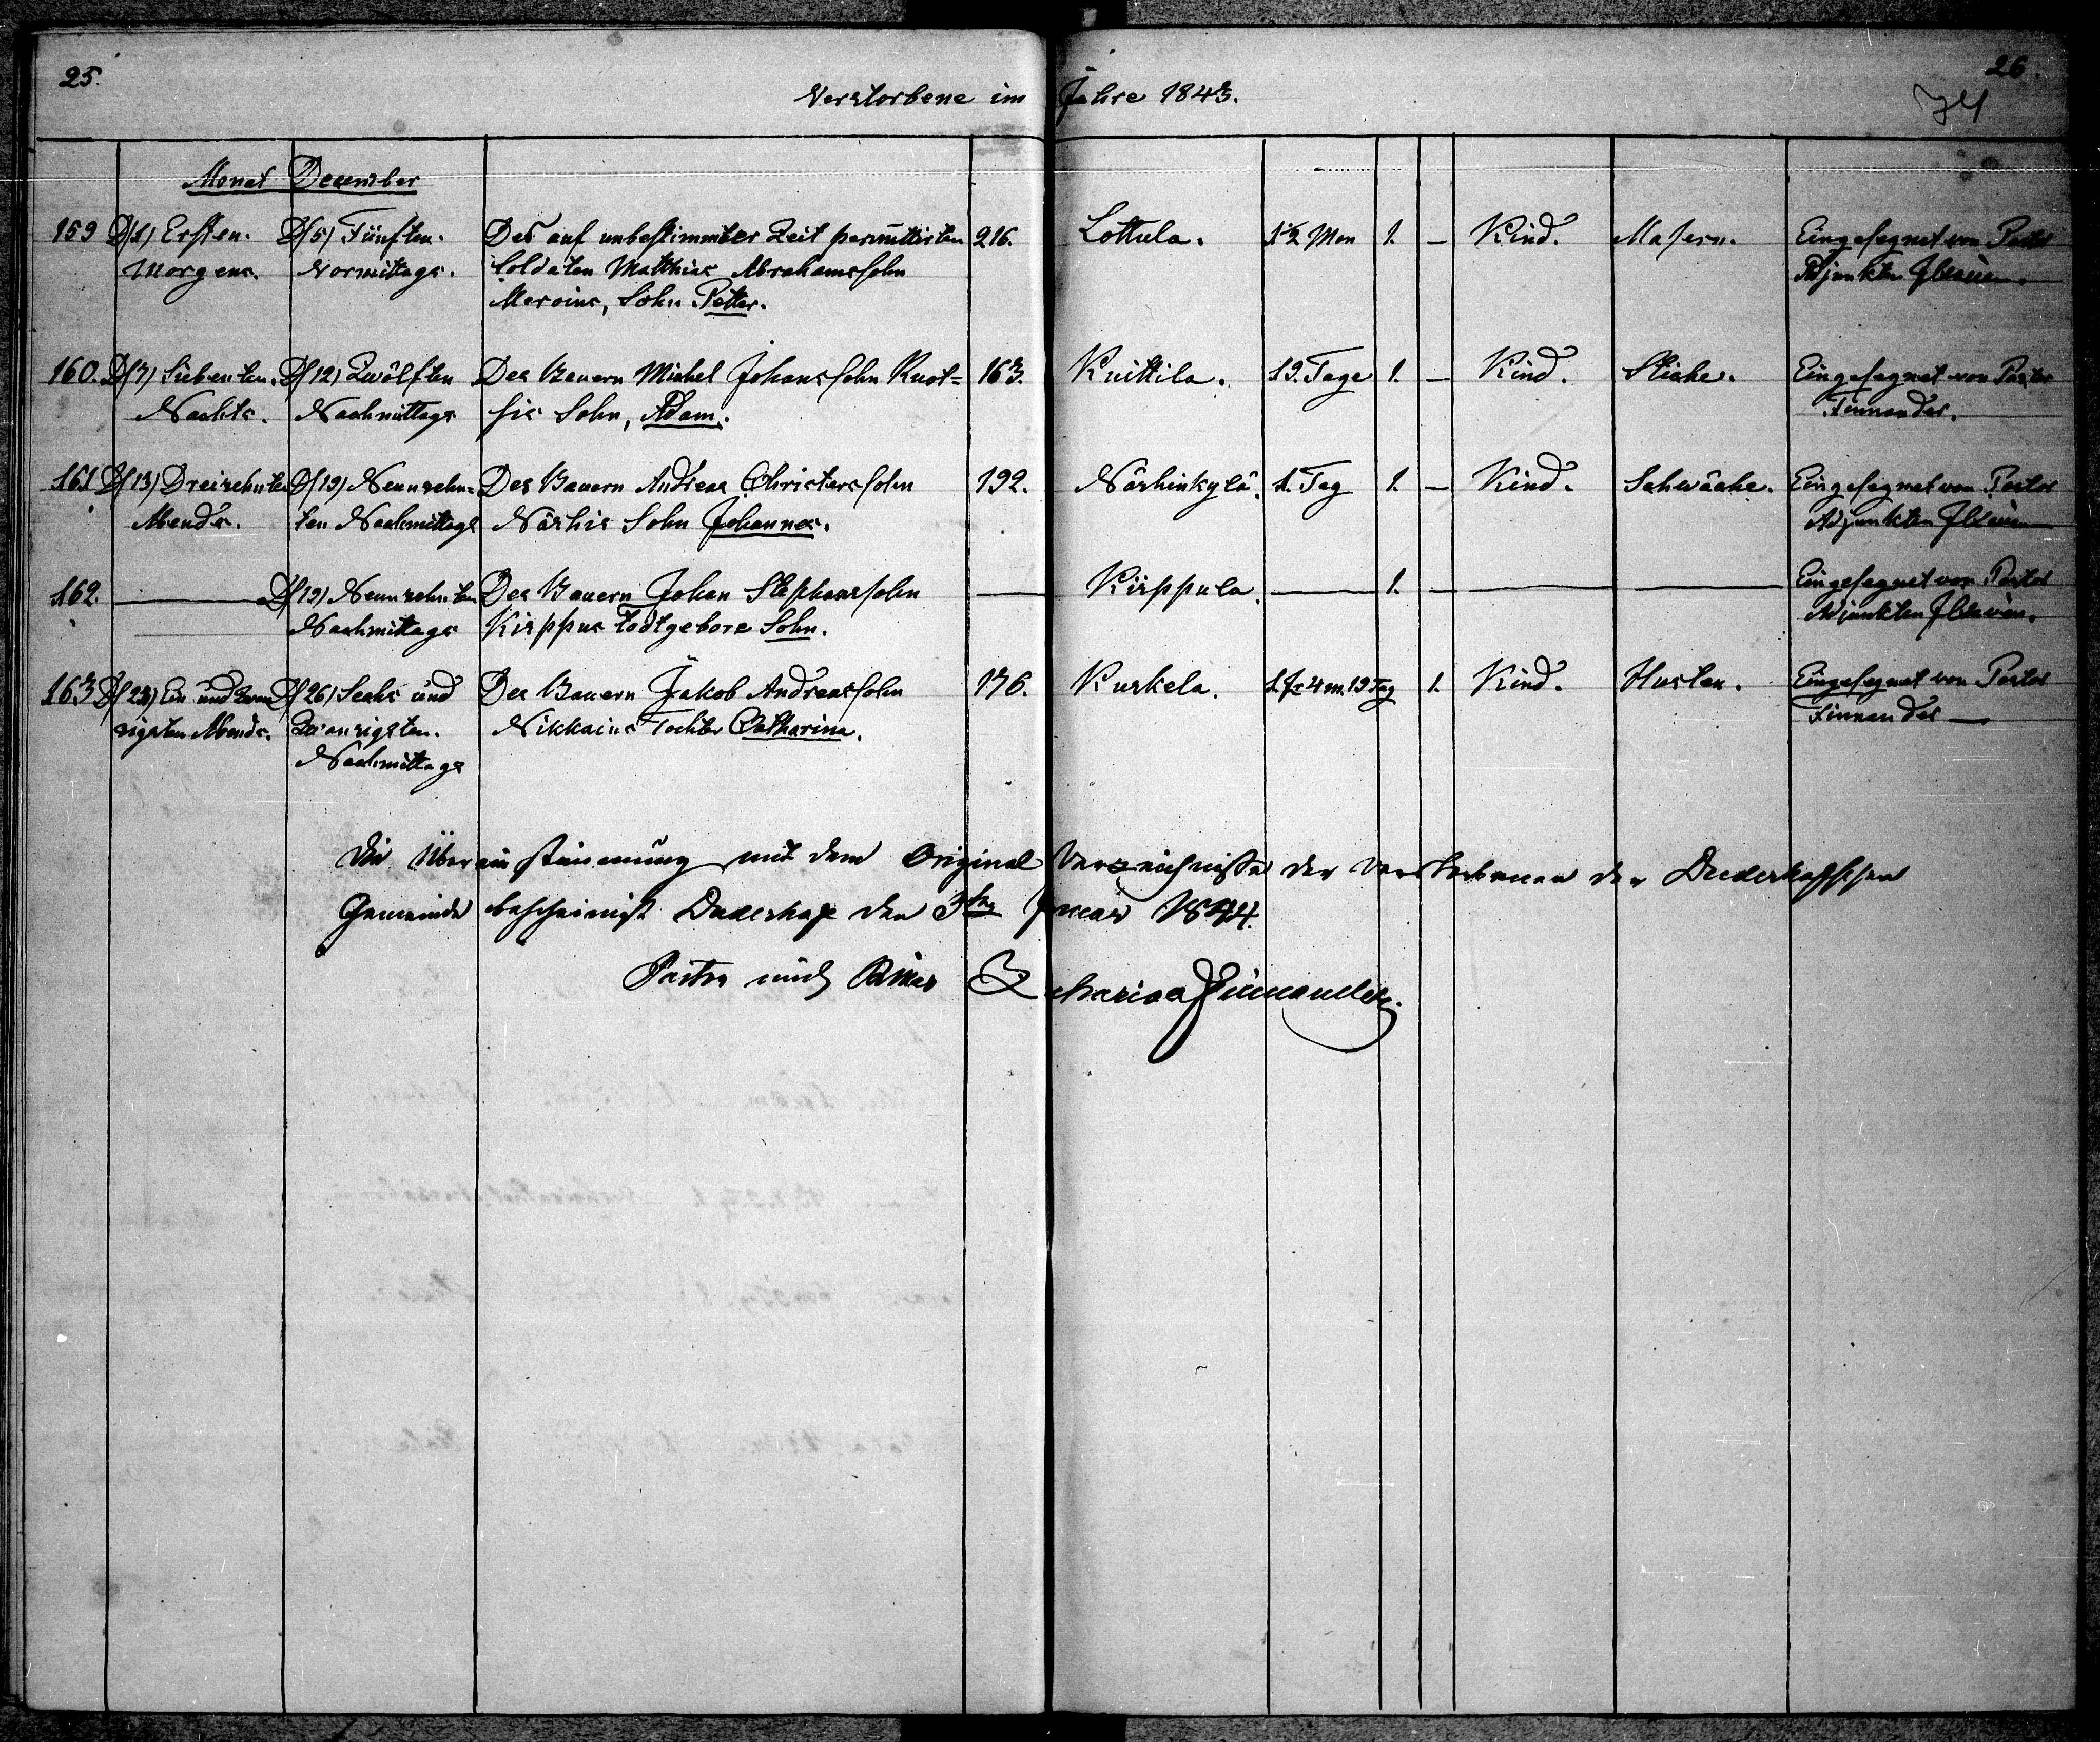 25.
26.
74
Verstorbene im Jahre 1843.
Monat December
159 D/1) Ersten. D/5) Fünften. Des auf unbestimmter Zeit permittirten 216. Lottula. 1½ Mon 1. — Kind. Masern. Eingesegnet von Pastor
Morgens. Vormittags. Soldaten Matthias Abrahamssohn Adjunkten
Meroine, Sohn Petter.
160. D/7) Siebenten. D/12) Zwölften Des Bauern Michel Johanssohn Ruot- 163. Knittila. 19. Tage 1. — Kind. Stiche. Eingesegnet von Pastor
Nachts. Nachmittags sis Sohn, Adam. Finnander.
161 D/13) Dreizehnten D/19) Neunzehn- Des Bauern Andreas Christerssohn 192. Närhinkylä. 1. Tag 1. — Kind. Schwäche. Eingesegnet von Pastor
Abends. ten Nachmittags Närhis Sohn Johannes. Adjunkten
162. — D/19) Neunzehnten Des Bauern Johan Stephanssohn — Kirppula. — 1. — — — Eingesegnet von Pastor
Nachmittags Kirppus todtgebore Sohn. Adjunkten
163 Ein und Zwan- D/26) Sechs und Des Bauern Jakob Andreassohn 176. Kurkela. 1 Jr 4 m. 19 Tag 1. Kind. Husten. Eingesegnet von Pastor
zigsten Abends. Zwanzigsten. Nikkains Tochter Catharina. Finnander —
Nachmittags
Die Übereinstimmung mit dem Original Verzeichnisse der Verstorbenen der Duderhofschen
Gemeinde bescheinigt Duderhof den 3ten Januar 1844.
Pastor Zacharias Finnander.